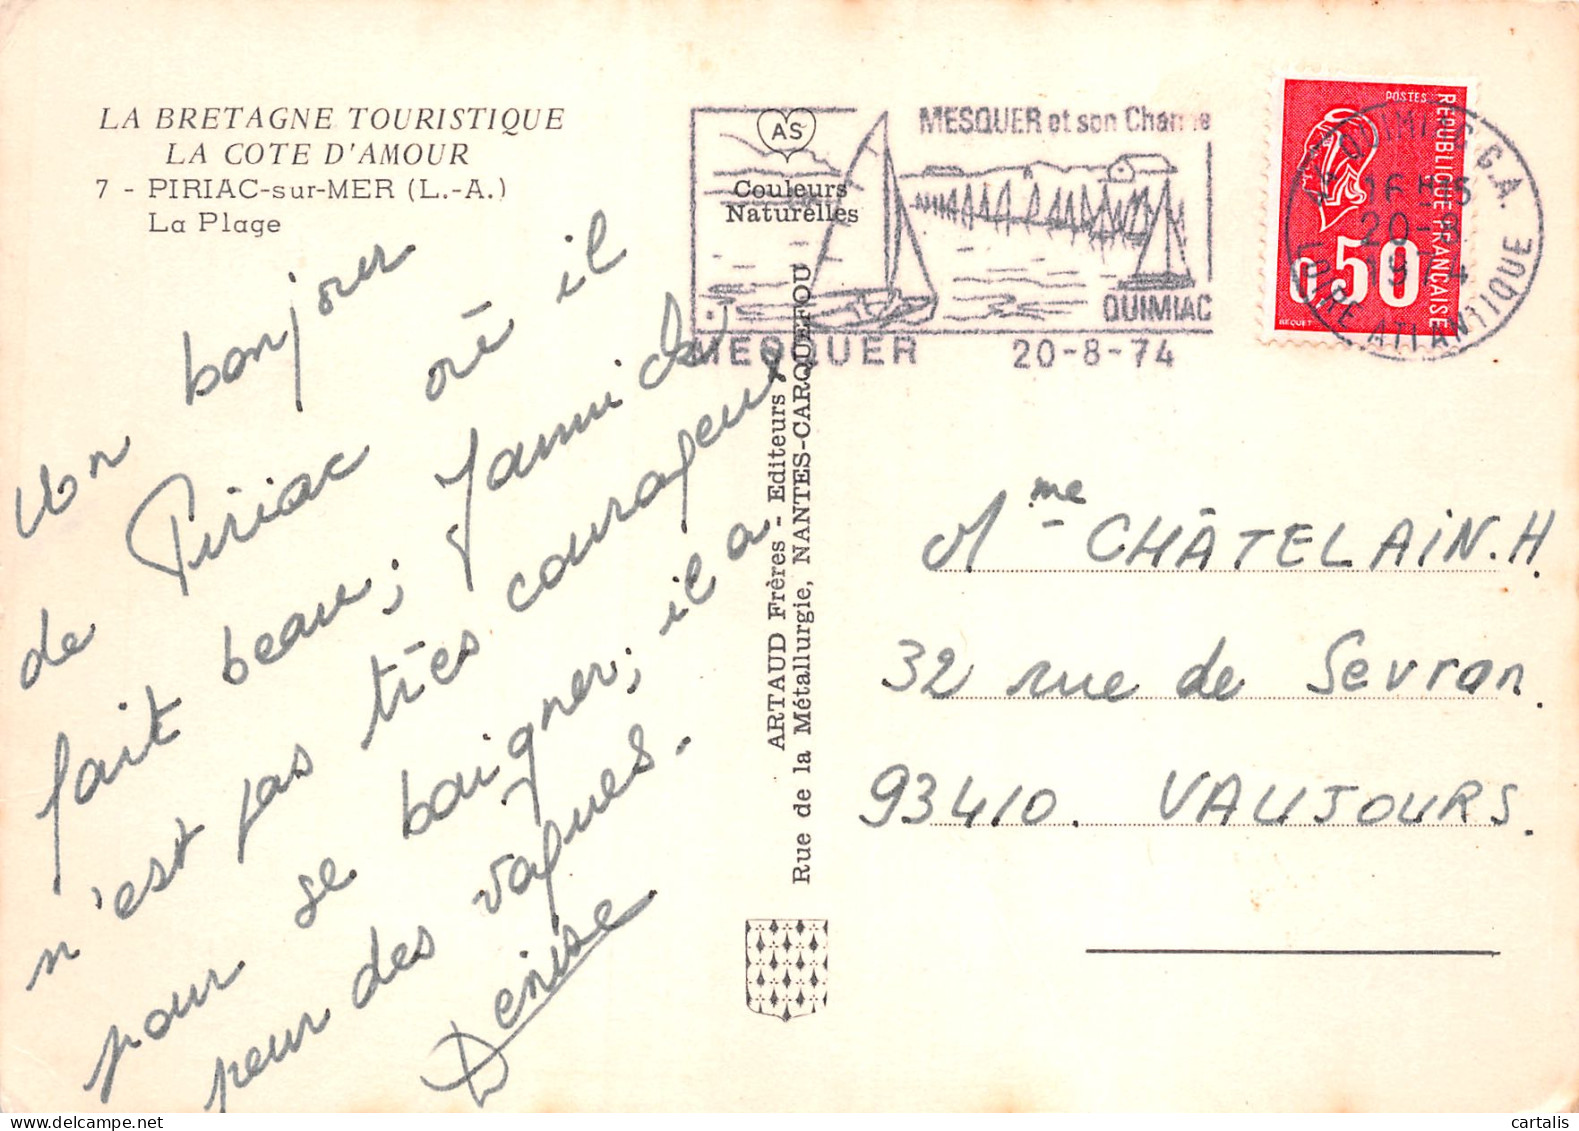 LA BRETAGNE TOURISTIQUE
LA COTE D'AMOUR
7 - PIRIAC-sur-MER (L.-A.)
La Plage
Un bonjour
de Piriac où il
fait beau; Yannick
n'est pas très courageux
pour se baigner; il a
peur des vagues.
Denise
AS
Couleurs
Naturelles
MESQUER et son Charme
QUIMIAC
MESQUER 20-8-74
ARTAUD Frères - Editeurs
Rue de la Métallurgie, NANTES-CARQUEFOU
POSTES
REPUBLIQUE FRANÇAISE
0,50
BEQUET
44 QUIMIAC G.A.
16H15
20-8
1974
LOIRE ATLANTIQUE
Mme CHÂTELAIN.H
32 rue de Sevran
93410. VAUJOURS.
cartalis